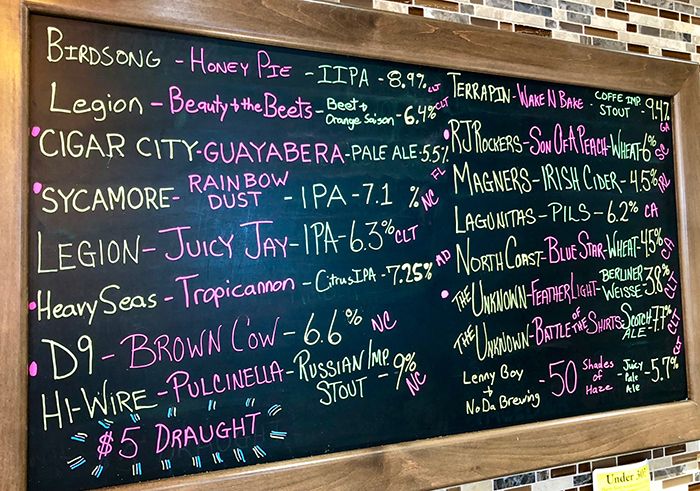 BIRDSONG - HONEY PIE - IIPA - 8.9% CLT
Legion - Beauty + the Beets - Beet + Orange Saison - 6.4% CLT
CIGAR CITY - GUAYABERA - PALE ALE - 5.5% FL
SYCAMORE - RAINBOW DUST - IPA - 7.1 % NC
LEGION - JUICY JAY - IPA - 6.3% CLT
HEAVY SEAS - Tropicannon - Citrus IPA - 7.25%
D9 - BROWN COW - 6.6% NC
HI-WIRE - PULCINELLA - RUSSIAN IMP. STOUT - 9% NC
$5 DRAUGHT
TERRAPIN - WAKE N BAKE - COFFE IMP. STOUT - 9.4% GA
RJ ROCKERS - SON OF A PEACH - WHEAT - 6% SC
MAGNERS - IRISH CIDER - 4.5%
LAGUNITAS - PILS - 6.2% CA
NORTH COAST - BLUE STAR - WHEAT - 4.5% CA
THE UNKNOWN - FEATHER LIGHT - BERLINER WEISSE - 3.8% CLT
THE UNKNOWN - BATTLE OF THE SHIRTS - SCOTCH ALE - 7.7% CLT
Lenny Boy + NoDa Brewing - 50 Shades of Haze - Juicy Pale Ale - 5.7% CLT
Under 30